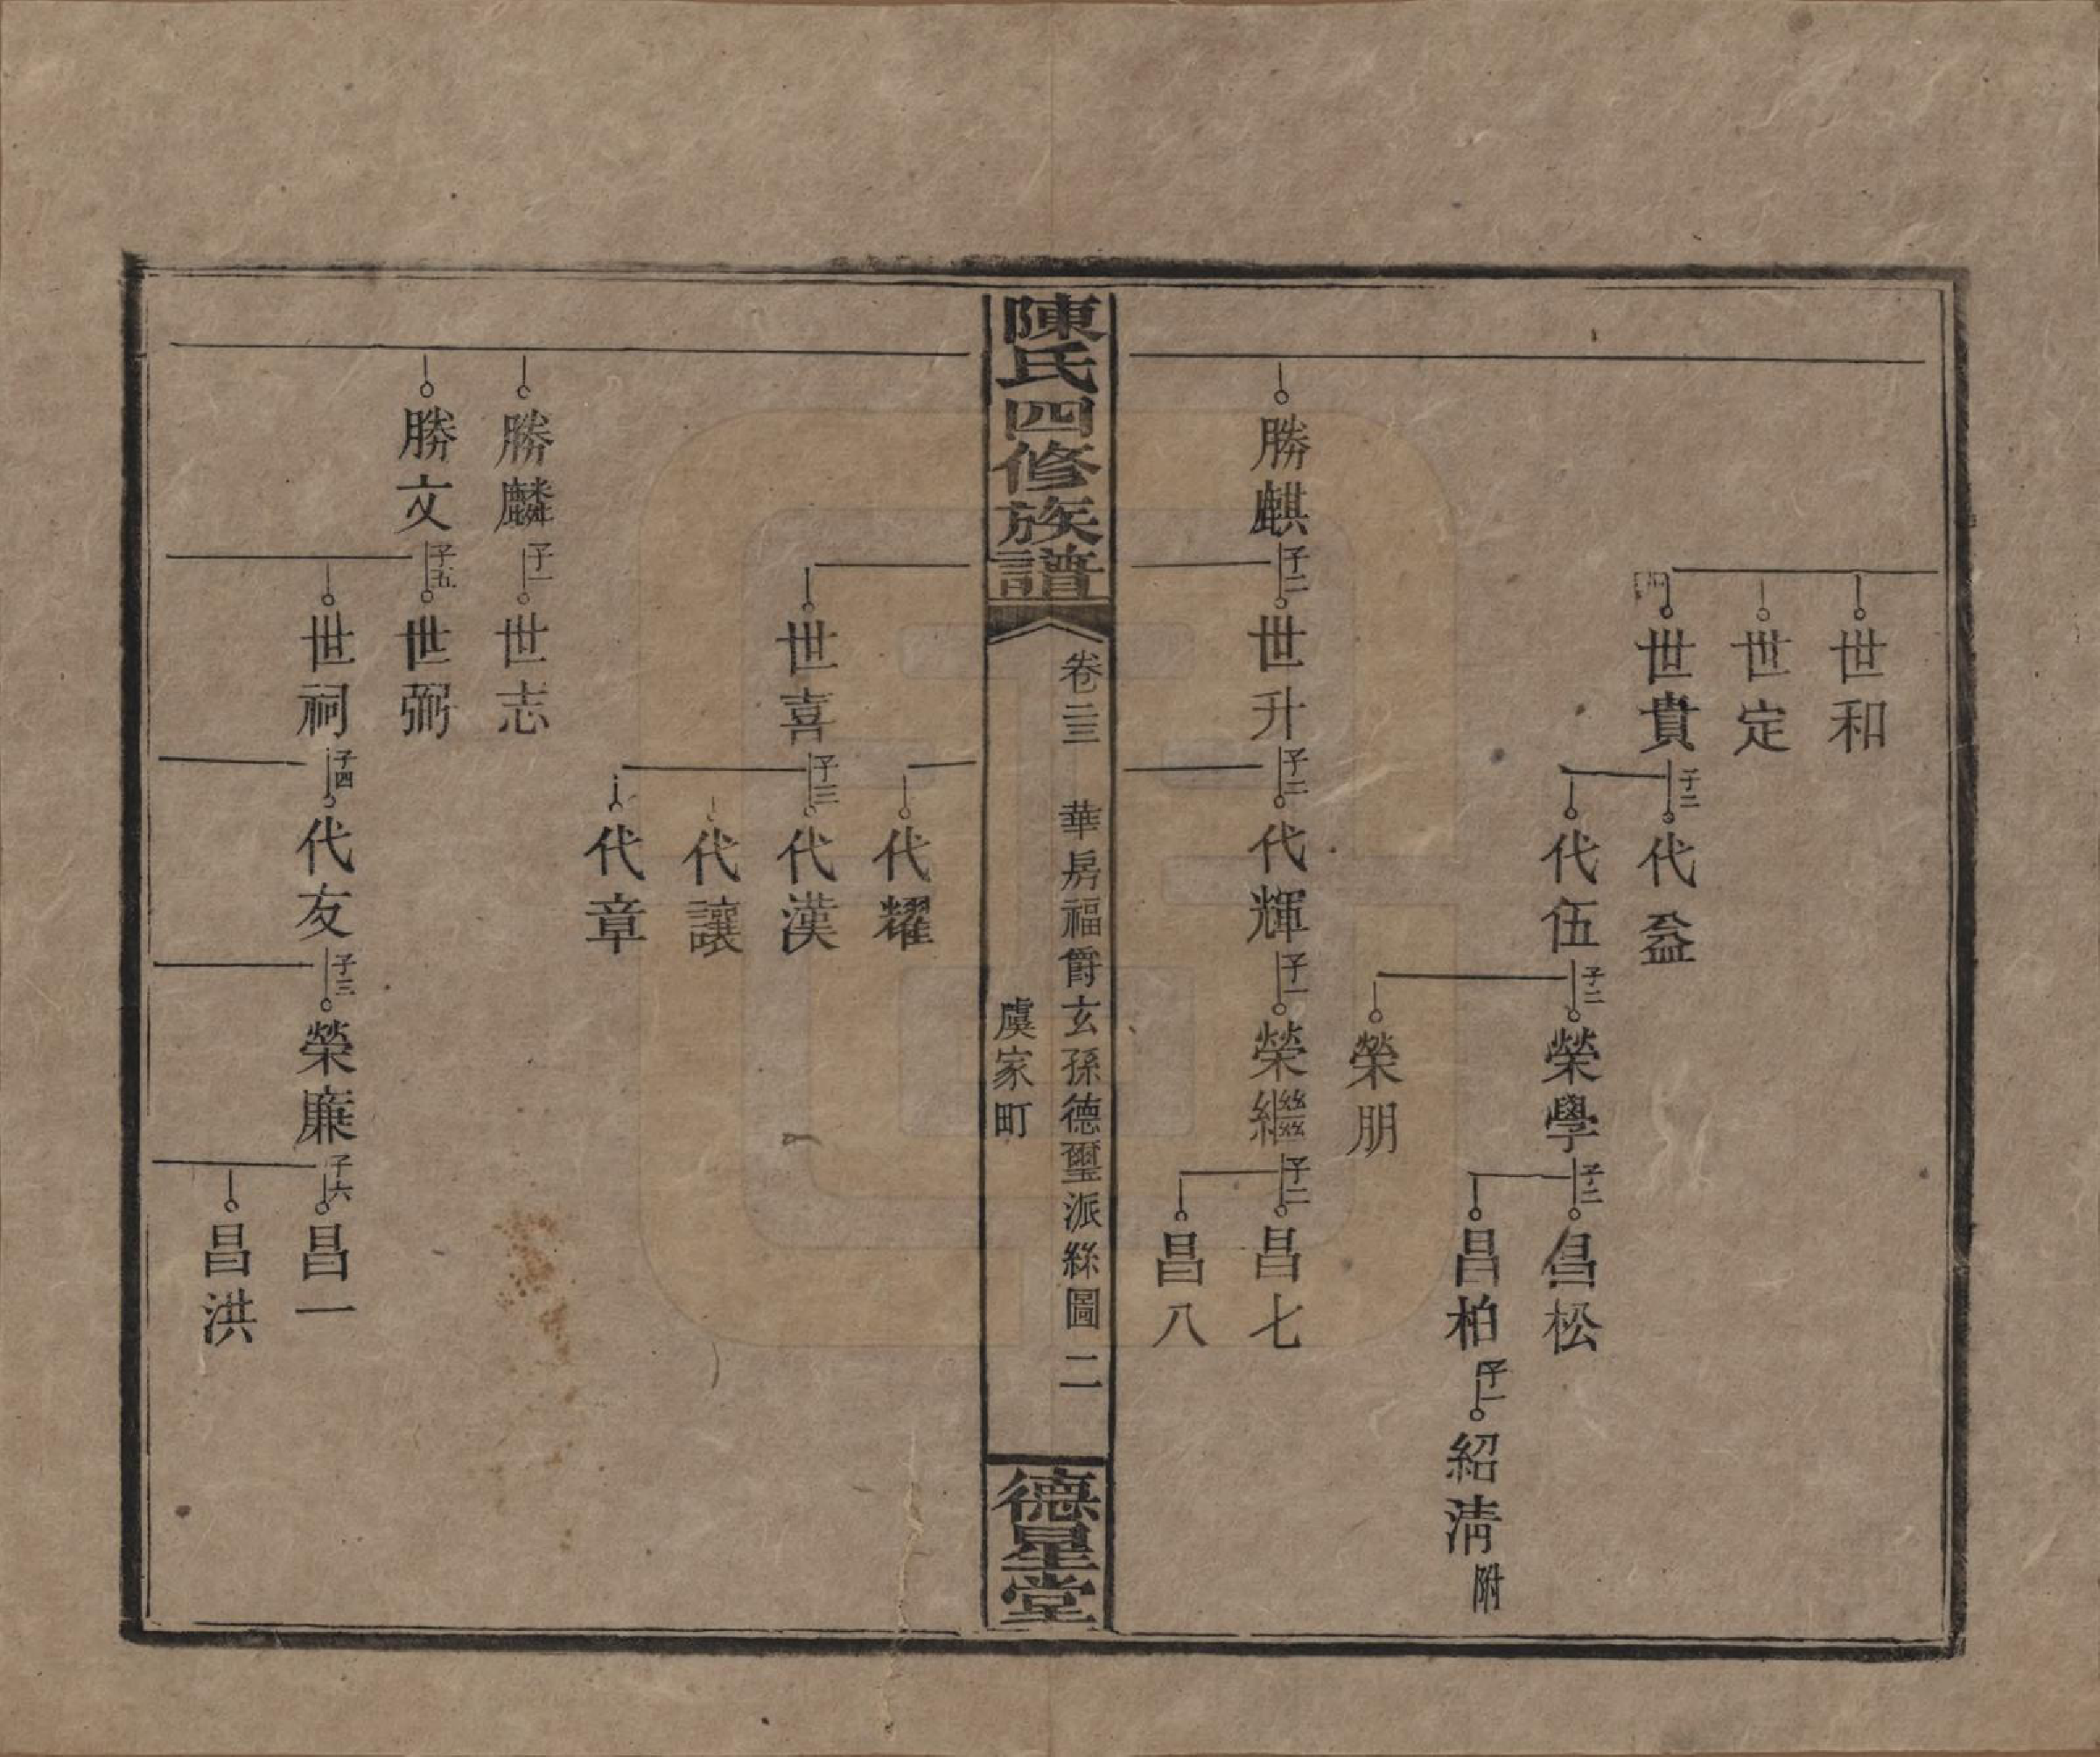 世和
世定
世貴 子二 代益
代伍 子二 榮學 子二 昌松
昌柏 子一 紹淸 附
榮朋
勝麒 子二 世升 子二 代輝 子一 榮繼 子二 昌七
昌八
陳氏四修族譜
卷三 華房福爵玄孫德璽派絲圖 二
虞家町
德星堂
代耀
世喜 子三 代漢
代讓
代章
勝麟 子一 世志
勝文 子五 世弼
世祠 子四 代友 子三 榮廉 子六 昌一
昌洪